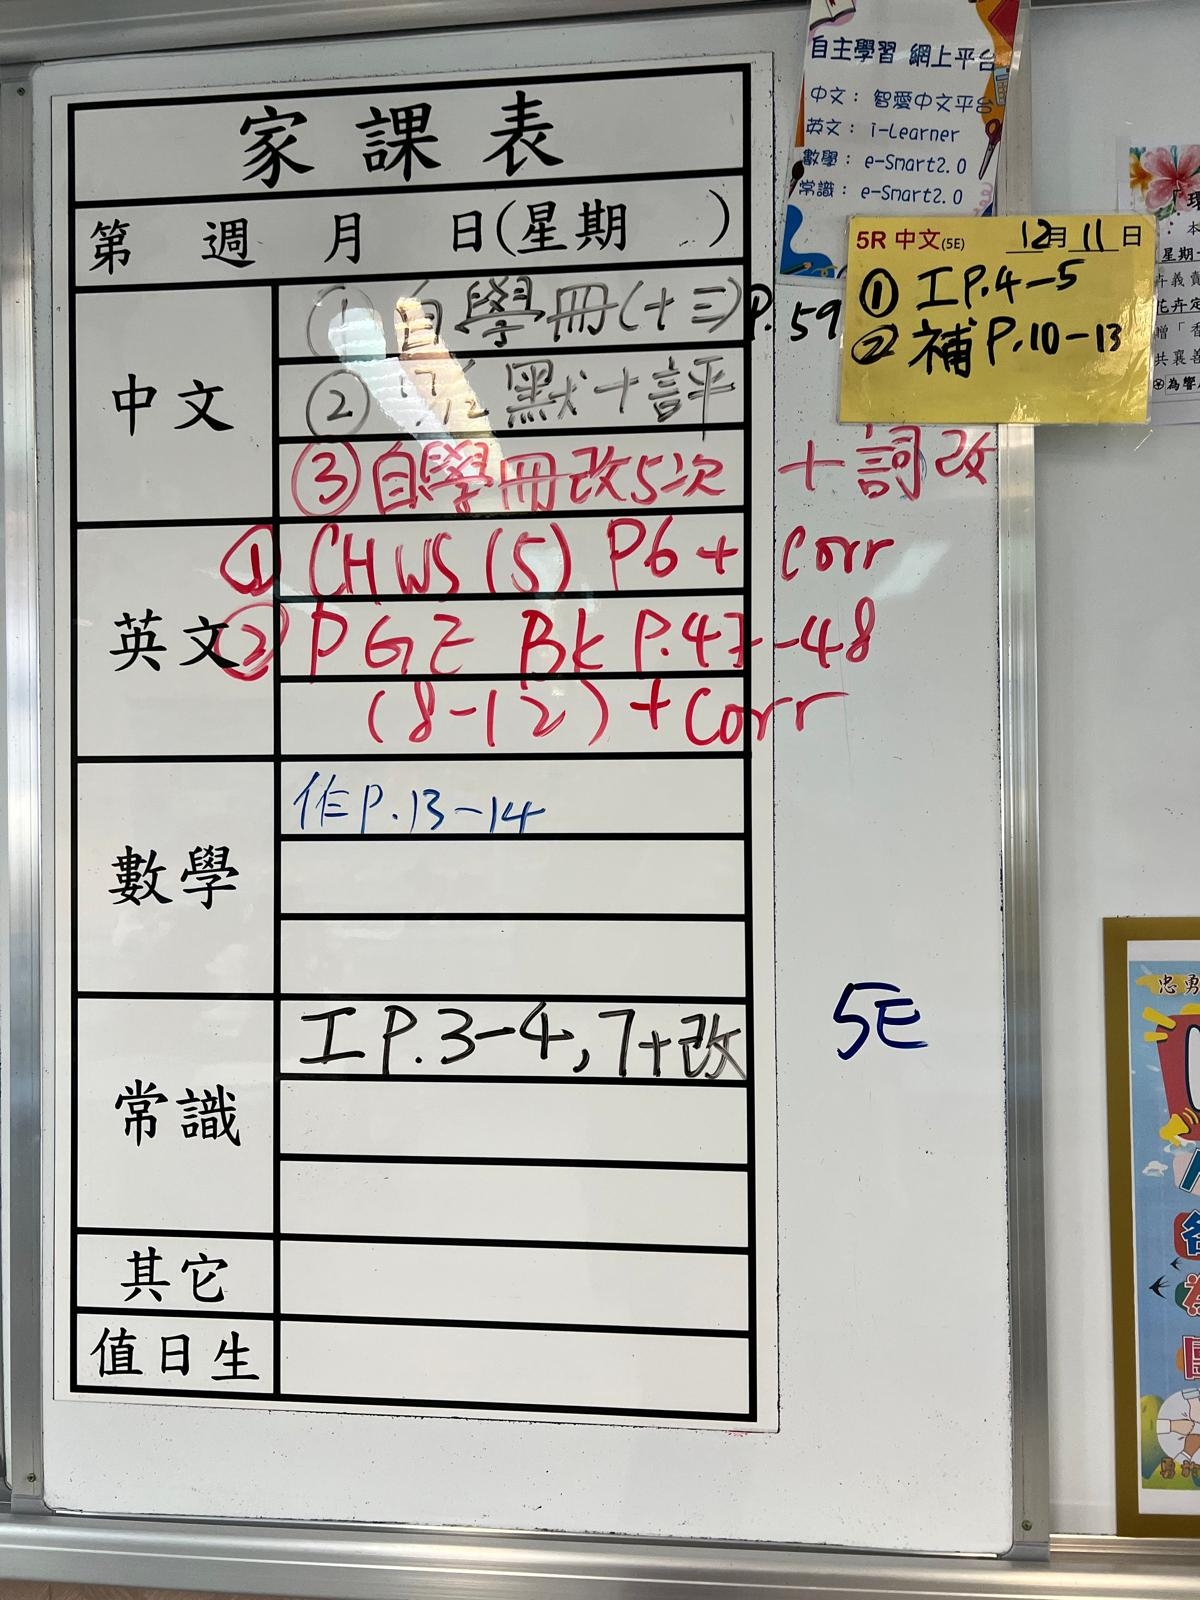 家課表
第 週 月 日(星期 )
中文
① 自學冊(十三)P.59
② 17/12 默+評
③ 自學冊改5次 + 詞改
英文
① CHWS (5) P6 + Corr
② PGE BK P.47-48
(8-12) + Corr
數學
作P.13-14
常識
工P.3-4, 7+改
其它
值日生
自主學習 網上平台
中文： 智愛中文平台
英文： i-Learner
數學： e-Smart2.0
常識： e-Smart2.0
5R 中文(5E) 12月11日
① 工P.4-5
② 補P.10-13
5E
星期
共襄善
忠勇